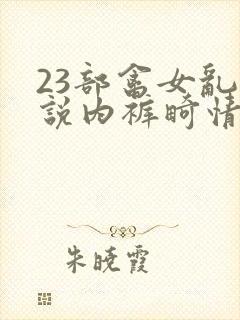 23部畜女乱
説内裤畸情
朱晓霞